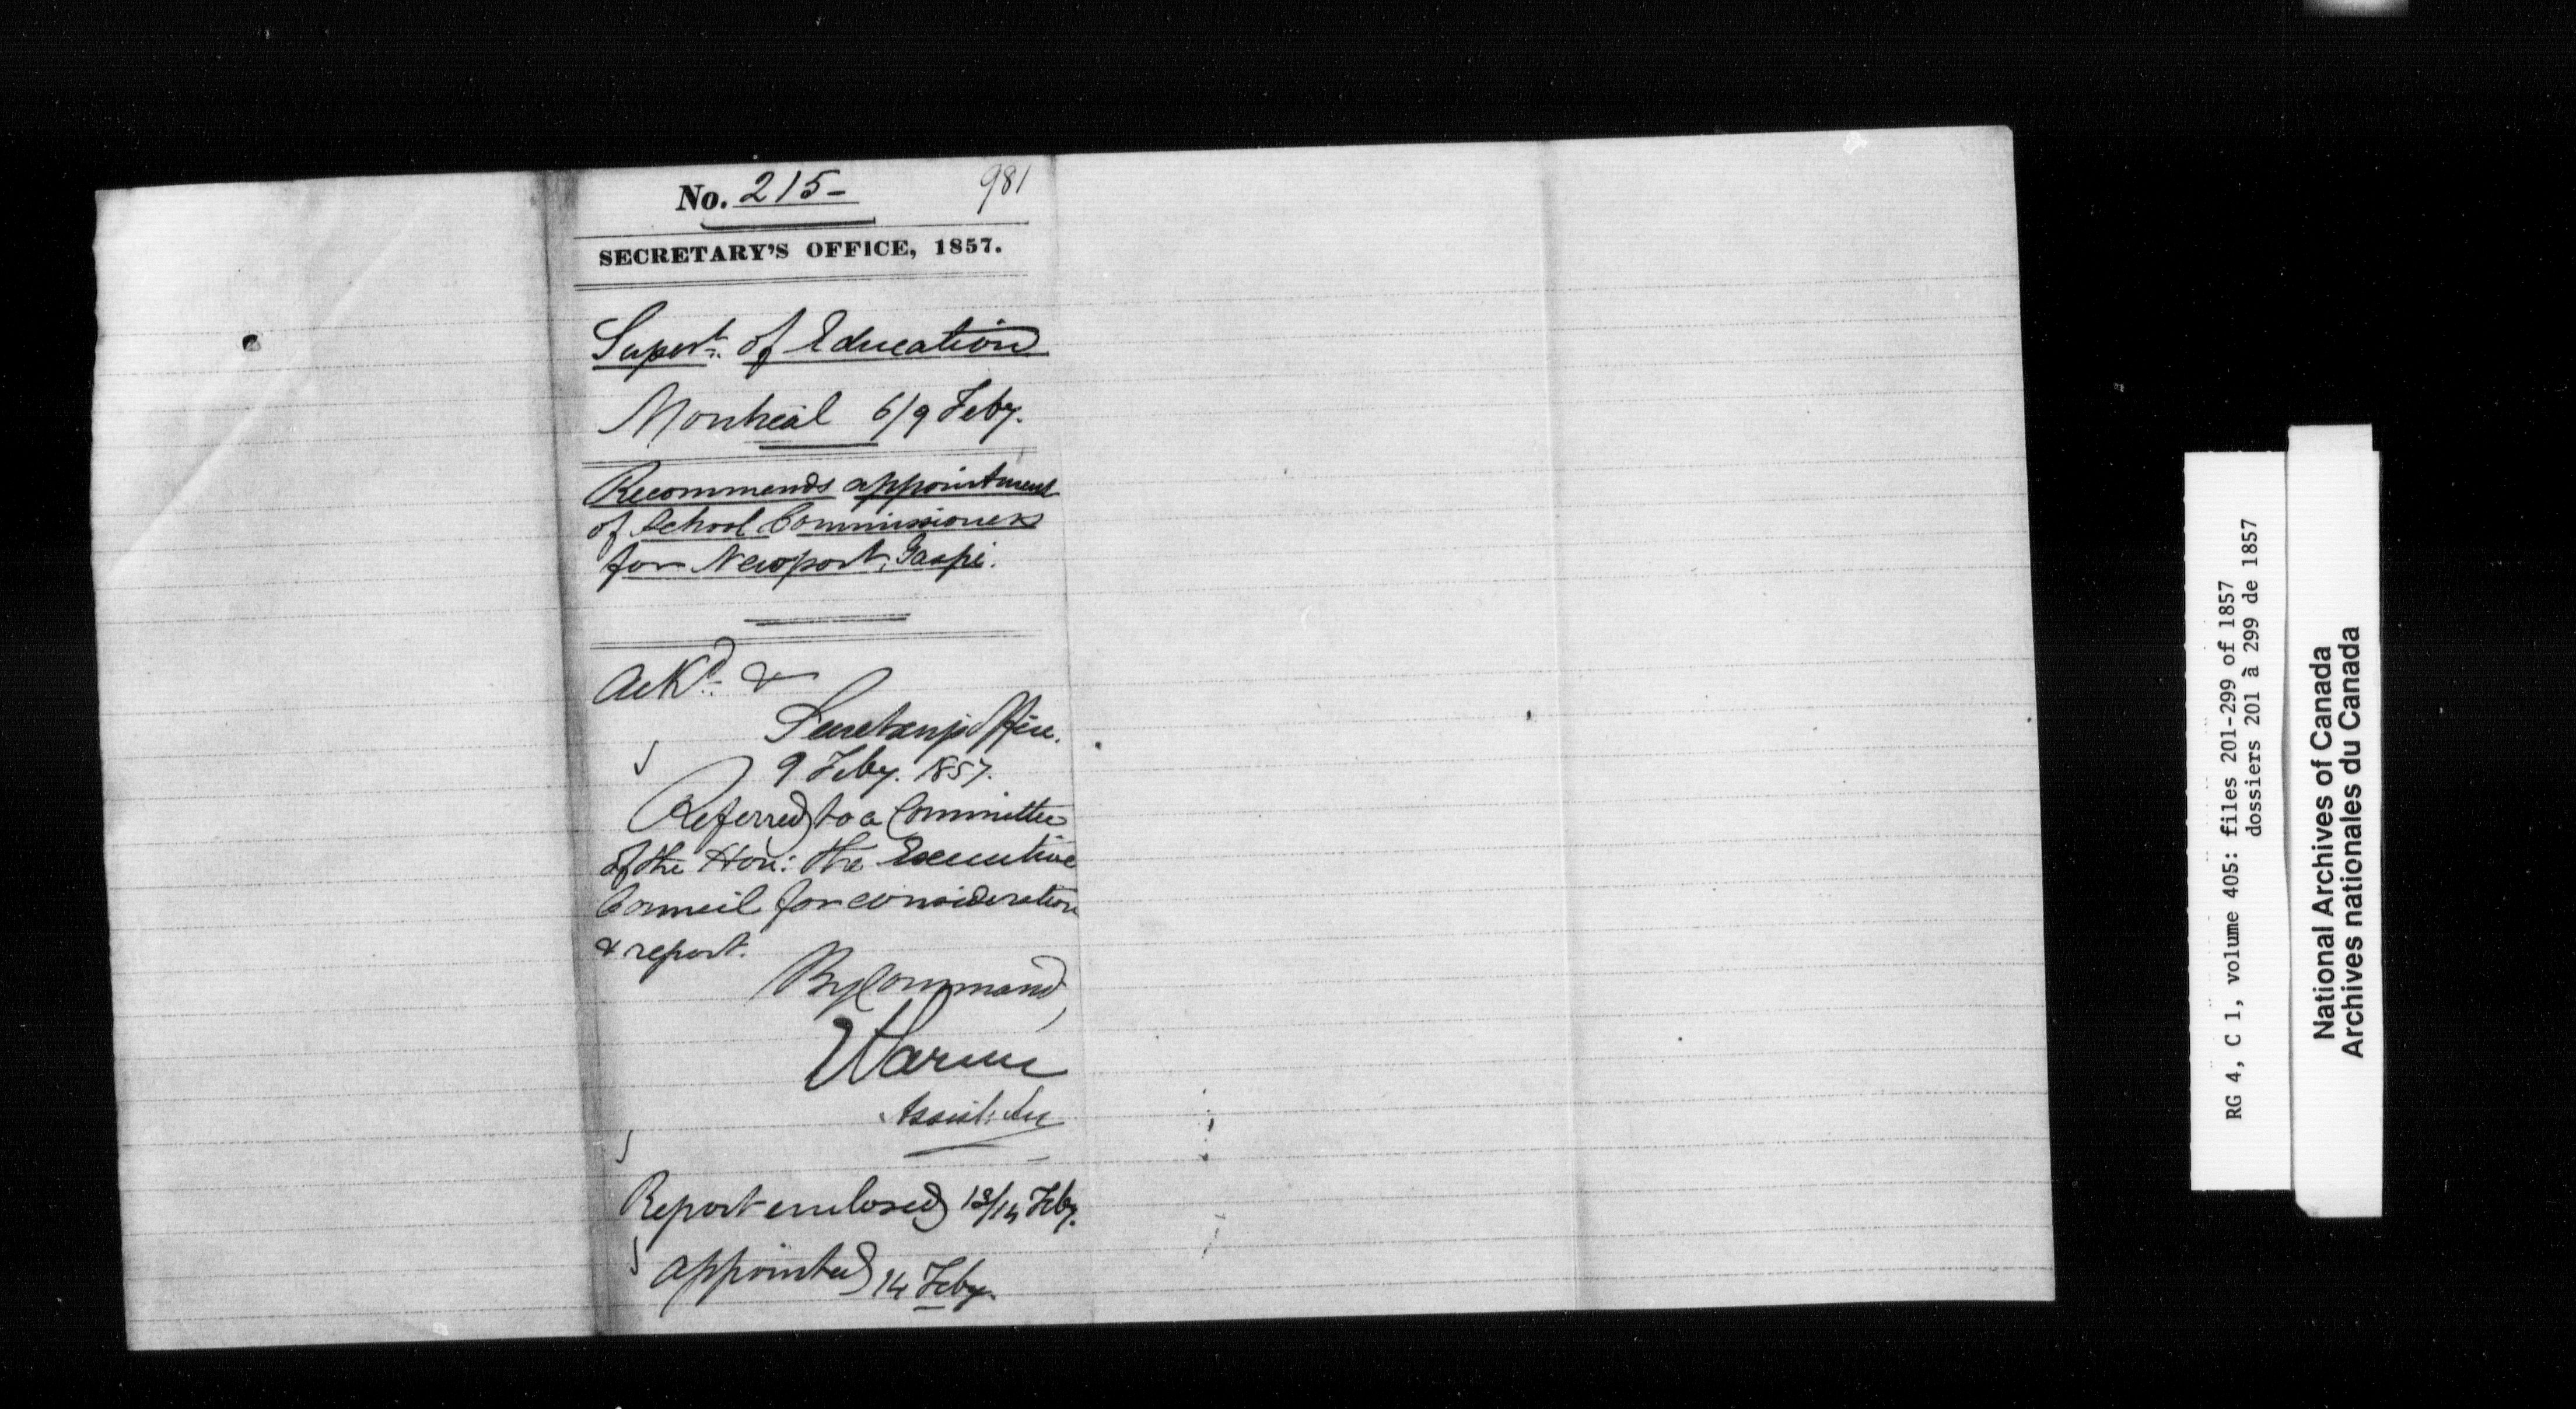 No. 215-
981
SECRETARY'S OFFICE, 1857.
Supert. of Education
Montreal 6/9 Feby.
Recommends appointment
of School Commissioners
for Newport, Gaspé.
Ackd. &
Secretary's Office.
9 Feby. 1857.
Referred to a Committee
of the Hon: the Executive
Council for consideration
& report.
By Command,
Assist. Sec
Report enclosed 13/14 Feby.
appointed 14 Feby.
RG 4, C 1, volume 405: files 201-299 of 1857
dossiers 201 à 299 de 1857
National Archives of Canada
Archives nationales du Canada